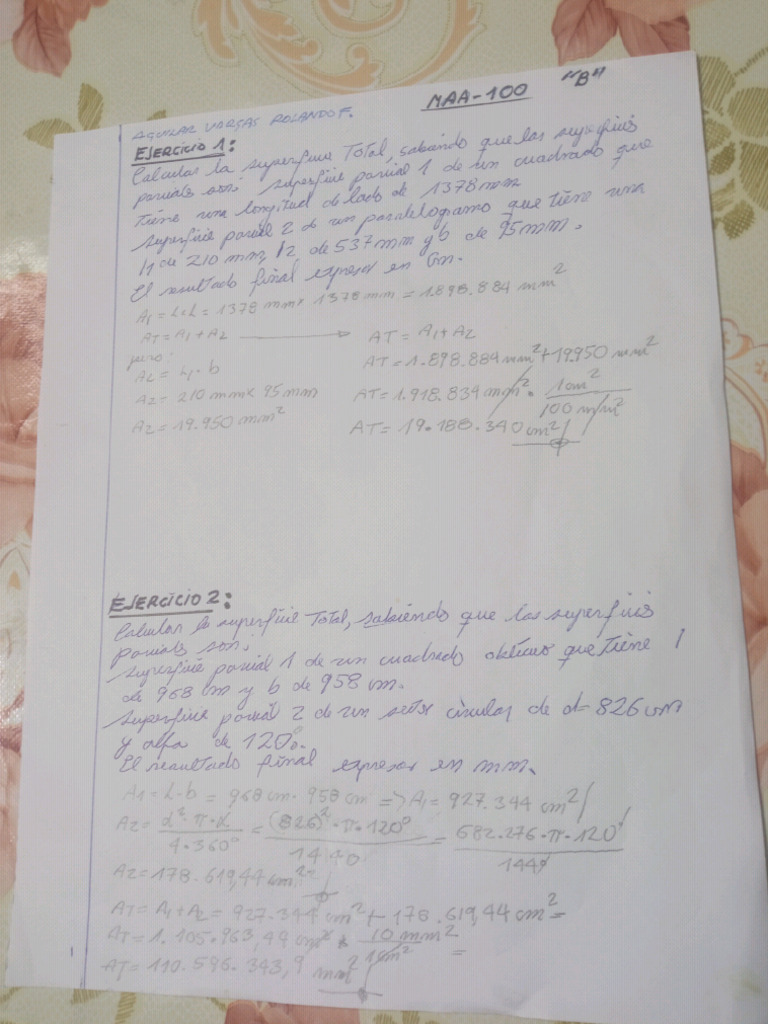 MAA-100 "B"
AGUILAR VARGAS ROLANDO F.
EJERCICIO 1:
Calcular la superficie Total, sabiendo que las superficies
parciales son: superficie parcial 1 de un cuadrado que
tiene una longitud de lado de 1378 mm
superficie parcial 2 de un paralelogramo que tiene una
l1 de 210 mm, l2 de 537 mm y b de 95 mm.
El resultado final expresar en Cm.
A1 = L*L = 1378 mm * 1378 mm = 1.898.884 mm²
AT = A1 + A2 → AT = A1 + A2
pero: AT = 1.898.884 mm² + 19.950 mm²
A2 = L1 · b
A2 = 210 mm x 95 mm AT = 1.918.834 mm² · 1cm² / 100 mm²
A2 = 19.950 mm² AT = 19.188.340 cm²
EJERCICIO 2:
Calcular la superficie Total, sabiendo que las superficies
parciales son.
superficie parcial 1 de un cuadrado oblicuo que tiene l
de 968 cm y b de 958 cm.
superficie parcial 2 de un sector circular de d= 826 cm
y alfa de 120°.
El resultado final expresar en mm.
A1 = L·b = 968 cm · 958 cm => A1 = 927.344 cm²
A2 = d²·π·α / 4·360° = (826)²·π·120° / 1440 = 682.276·π·120° / 1440
A2 = 178.619,44 cm²
AT = A1 + A2 = 927.344 cm² + 178.619,44 cm² =
AT = 1.105.963,44 cm² * 10 mm² / 1cm² =
AT = 110.596.343,9 mm²